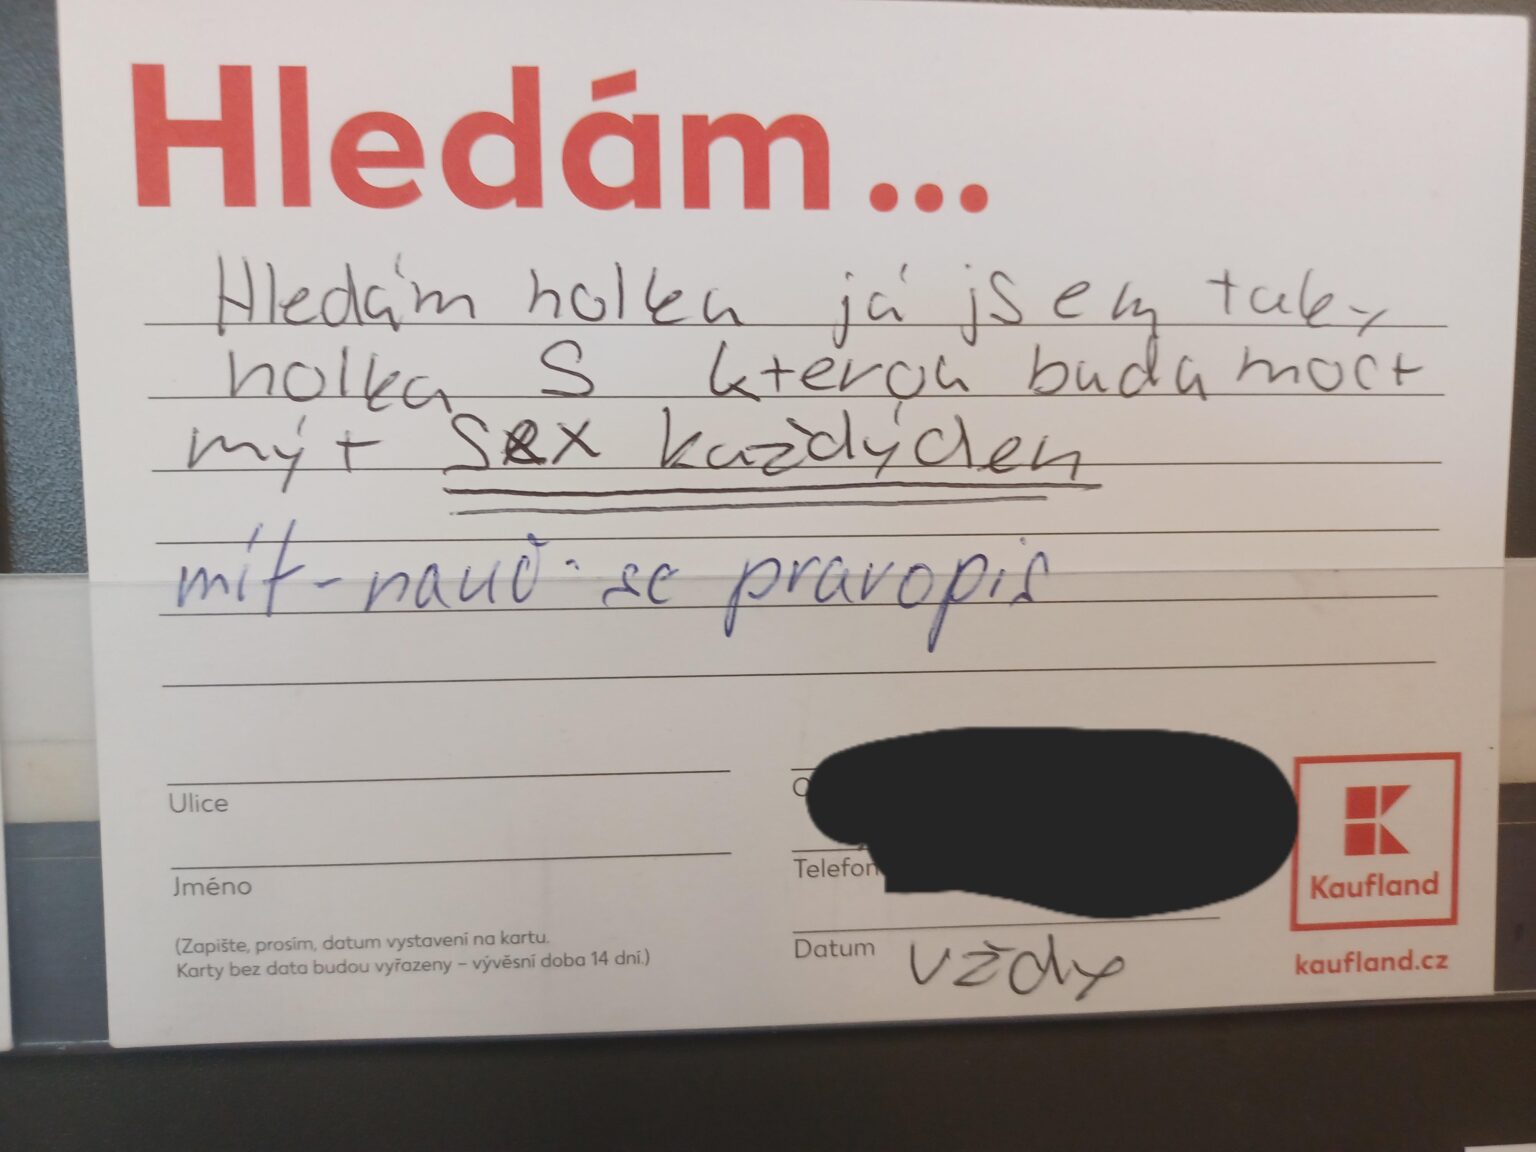 Hledám...
Hledám holka já jsem taky
holka S kterou buda moct
mýt sex každýden
mít - nauč se pravopis
Ulice
Jméno
Telefon
Datum vždy
(Zapište, prosím, datum vystavení na kartu.
Karty bez data budou vyřazeny – vývěsní doba 14 dní.)
Kaufland
kaufland.cz